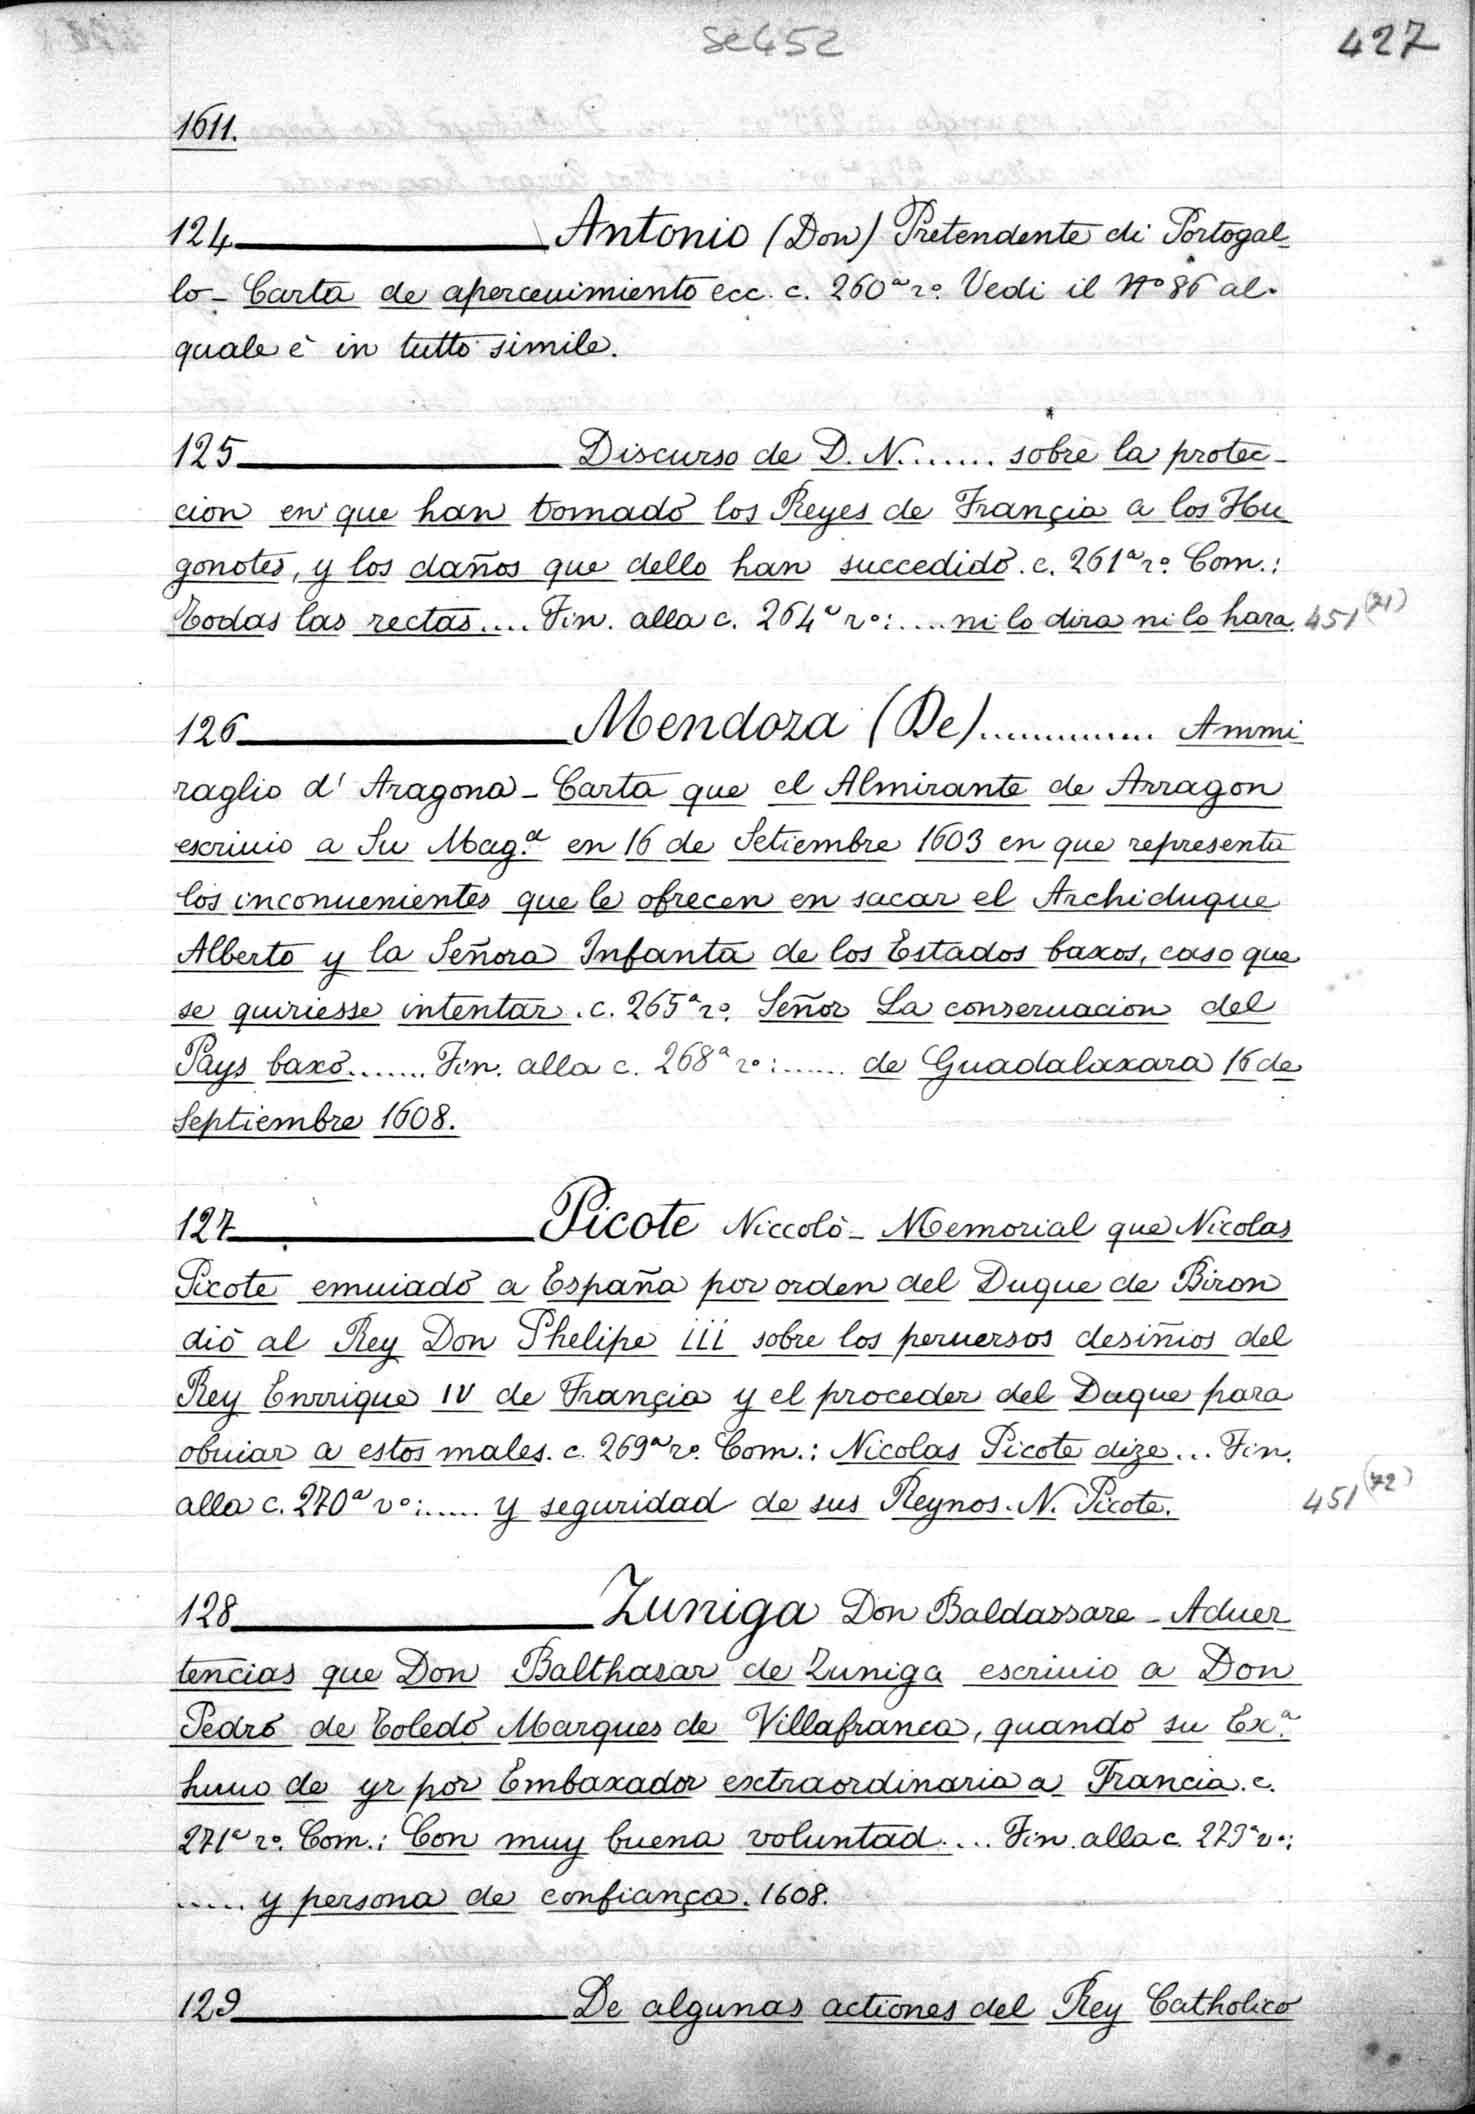 se 452
427
1611.
124 Antonio (Don) Pretendente di Portogal-
lo - Carta de aperceuimiento ecc. c. 260ª rº. Vedi il Nº 86 al
quale è in tutto simile.
125 Discurso de D. N....... sobre la protec-
cion en que han tomado los Reyes de Françia a los Hu
gonotes, y los daños que dello han succedido. c. 261ª rº. Com.:
Todas las rectas.... Fin. alla c. 264ª rº:.... ni lo dira ni lo hara. 451 (71)
126 Mendoza (De).............. Ammi
raglio d' Aragona - Carta que el Almirante de Arragon
escriuio a Su Mag.d en 16 de Setiembre 1603 en que representa
los inconuenientes que le ofrecen en sacar el Archiduque
Alberto y la Señora Infanta de los Estados baxos, caso que
se quiriesse intentar. c. 265ª rº. Señor La conseruacion del
Pays baxo....... Fin. alla c. 268ª rº:...... de Guadalaxara 16 de
Septiembre 1608.
127 Picote Niccolò - Memorial que Nicolas
Picote emuiado a España por orden del Duque de Biron
diò al Rey Don Phelipe iii sobre los peruersos desiños del
Rey Enrrique IV de Françia y el proceder del Duque para
obuiar a estos males. c. 269ª rº. Com.: Nicolas Picote dize... Fin.
alla c. 270ª vº:..... y seguridad de sus Reynos. N. Picote. 451 (72)
128 Zuniga Don Baldassare - Aduer
tencias que Don Balthasar de Zuniga escriuio a Don
Pedro de Toledo Marques de Villafranca, quando su Ex.ª
huuo de yr por Embaxador extraordinario a Francia. c.
271ª rº. Com.: Con muy buena voluntad.... Fin. alla c. 273ª vº:
..... y persona de confiança. 1608.
129 De algunas actiones del Rey Catholico